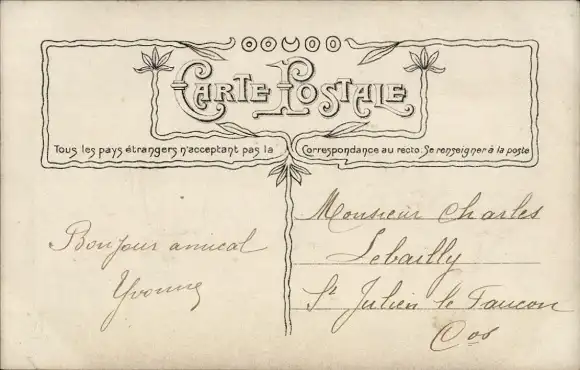 CARTE POSTALE
Tous les pays étrangers n'acceptant pas la Correspondance au recto. Se renseigner à la poste
Bonjour amical
Yvonne
Monsieur Charles
Lebailly
St Julien le Faucon
Cos